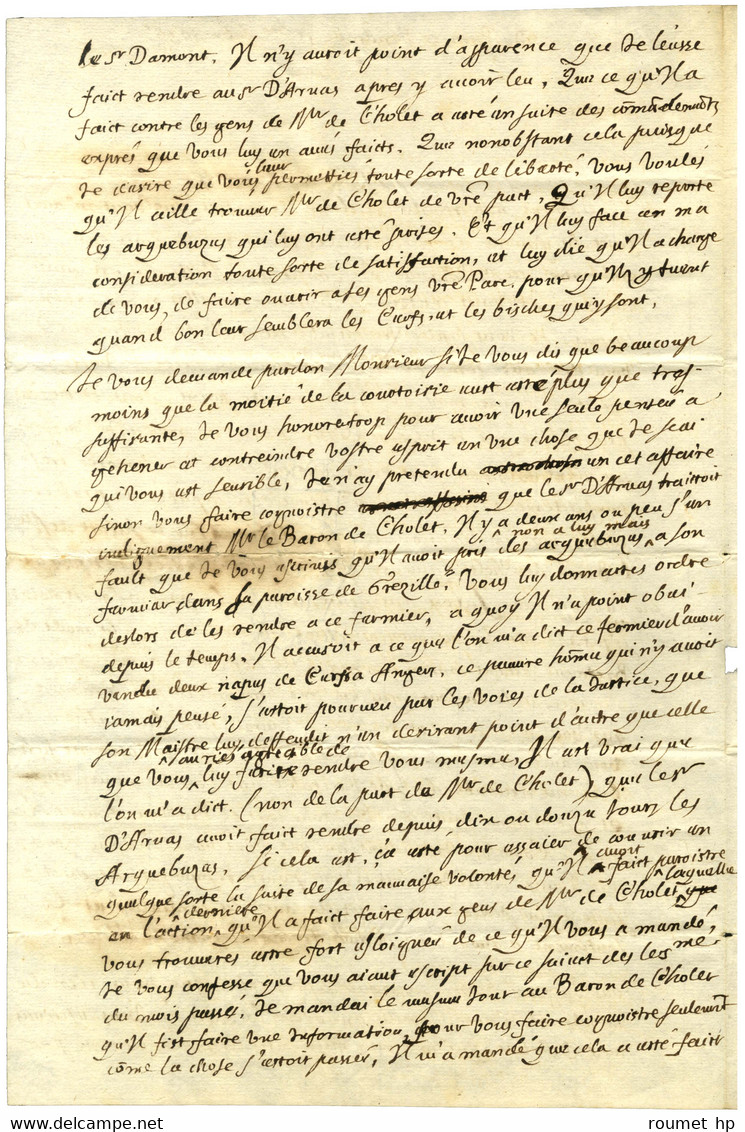 le Sr Damont, Il n'y auroit point d'apparence que Je l'eusse
faict rendre au Sr D'Aruas apres y auoir leu, Que ce qu'Il a
faict contre les gens de Mr de Cholet a esté en suite des commandements
exprés que vous luy en aués faicts. Que nonobstant cela puisque
Je desire que vous leur permettiés toute sorte de liberté, vous voulés
qu'Il aille trouuer Mr de Cholet de vre part, Qu'Il luy reporte
les arquebuzes qui luy ont esté prises. Et qu'Il luy face en ma
consideration toute sorte de satisfaction, et luy die qu'Il a charge
de vous, de faire ouurir a ses gens vre Parc, pour qu'Ilz y tuent
quand bon leur semblera les Cerfs, et les bisches qui y sont,
Je vous demande pardon Monsieur si Je vous dis que beaucoup
moins que la moitié de la courtoisie eust esté plus que tres-
suffisante, Je vous honore trop pour auoir vne seule pensée a
gehener et contreindre vostre esprit en vne chose que Je scai
qui vous est sensible, Je n'ay pretendu en cet affaire
sinon vous faire cognoistre que le Sr D'Aruas traittoit
indignement Mr le Baron de Cholet. Il y a deux ans ou peu s'en
fault que Je vous escriuis qu'Il auoit pris des arquebuzes non a luy mais a son
farmier dans la paroisse de Grezillé. Vous luy donnastes ordre
deslors de les rendre a ce farmier, a quoy Il n'a point obai
depuis le temps. Il accusoit a ce que l'on m'a dict ce fermier d'auoir
vendu deux napes de Cerfs a Angers, ce pauure homme qui n'y auoit
iamais pensé, s'estoit pourueu par les voies de la Justice, que
son Maistre luy deffendit n'en desirant point d'autre que celle
que vous auriés agreable de luy rendre vous mesme, Il est vrai que
l'on m'a dict (non de la part de Mr de Cholet) que le Sr
D'Aruas auoit faict rendre depuis dix ou douze Jours les
Arquebuzes, si cela est, ç'a esté pour assaier de couurir en
quelque sorte la suite de sa mauuaise volonté, qu'Il auoit faict paroistre
en l'action derniere qu'Il a faict faire aux gens de Mr de Cholet, laquelle
vous trouuerés estre fort esloignée de ce qu'Il vous a mandé,
Je vous confesse que vous aiant escript sur ce suiect des le 5me
du mois passé, Je mandai le mesme Jour au Baron de Cholet
qu'Il fist faire vne Information, pour vous faire cognoistre seulement
come la chose s'estoit passée, Il m'a mandé que cela a esté faict
roumet hp